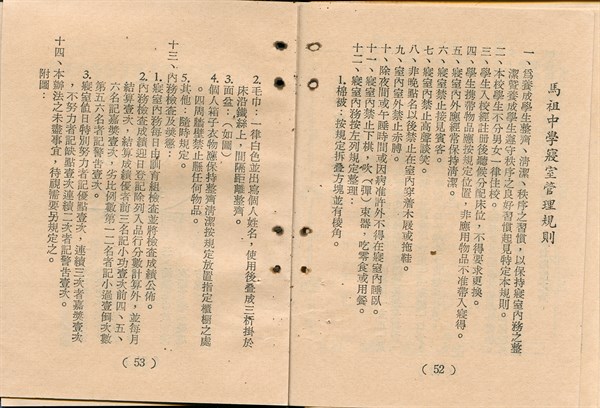 馬祖中學寢室管理規則
一、為養成學生整齊、清潔、秩序之習慣，以保持寢室內務之整
潔暨養成學生遵守秩序之良好習慣起見特定本規則。
二、本校學生不分男女一律住校。
三、學生入校經註冊後聽候分配床位，不得要求更換。
四、學生攜帶物品應按規定位置，非應用物品不准帶入寢室。
五、寢室內外應經常保持清潔。
六、寢室禁止接見賓客。
七、寢室內禁止高聲談笑。
八、非晚點名以後禁止在室內穿着木屐或拖鞋。
九、室內室外禁止赤膊。
十、除夜間或午睡時間或因病准許外不得在寢室內睡臥。
十一、寢室內禁止下棋，吹（彈）樂器，吃零食或用餐。
十二、寢室內務按左列規定整理：
1.棉被：按規定拆疊方塊並有稜角。
（52）
2.毛巾：一律白色並出寫個人姓名，使用後疊成三折掛於
床沿鐵絲上，間隔距離整齊。
3.面盆：，（如圖）
4.個人箱子衣物應保持整齊清潔按規定放置指定櫃櫥之處
。四周牆壁禁止懸任何物品。
5.其他：隨時規定。
十三、內務檢查及獎懲：
1.寢室內務每日由訓育組檢查並將檢查成績公佈。
2.內務檢查成績逐日登記除列入品行分數計算外，並每月
結算壹次，結算成績優者前三名記小功壹次前四、五、
六名記嘉獎壹次，劣比例數第一二名者記小過壹次倒數
第五六名者記警告壹次。
3.寢室值日特別努力者記優點壹次，連續三次者嘉獎壹次
，不努力者記缺點壹次連續二次者記警告壹次。
十四、本辦法之未盡事宜，待視需要另規定之。
附圖：
（53）